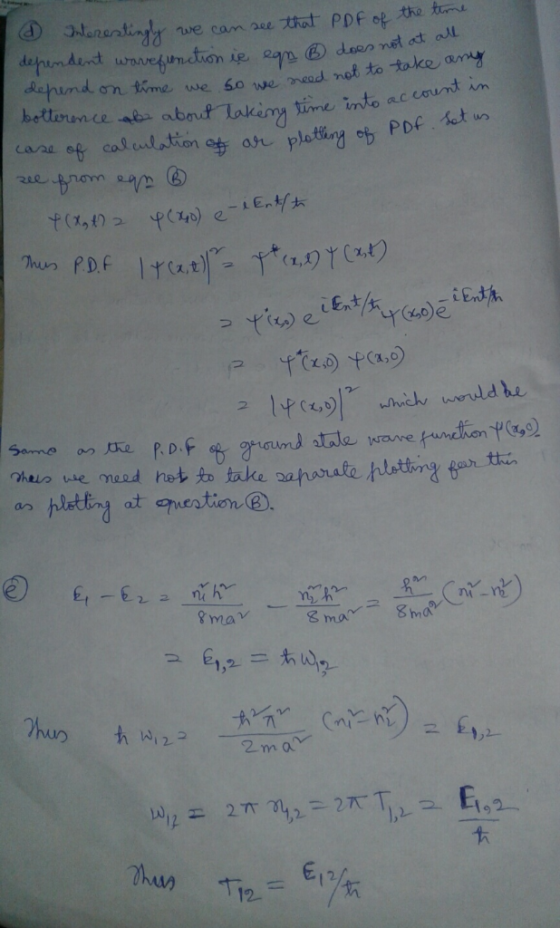 (d) Interestingly we can see that PDF of the time
dependent wavefunction ie eqn (B) does not at all
depend on time we so we need not to take any
botterence about taking time into account in
case of calculation or plotting of PDF. Let us
see from eqn (B)
ψ(x,t) = ψ(x,0) e^{-iE_n t/ħ}
Thus P.D.F |ψ(x,t)|² = ψ*(x,t) ψ(x,t)
= ψ*(x,0) e^{iE_n t/ħ} ψ(x,0) e^{-iE_n t/ħ}
= ψ*(x,0) ψ(x,0)
= |ψ(x,0)|² which would be
same as the P.D.F of ground state wave function ψ(x,0)
Thus we need not to take saparate plotting for this
as plotting at question (B).
(e) E₁ - E₂ = n₁²h²/8ma² - n₂²h²/8ma² = h²/8ma² (n₁² - n₂²)
= E₁,₂ = ħω₁,₂
Thus ħω₁₂ = ħ²π²/2ma² (n₁² - n₂²) = E₁,₂
ω₁₂ = 2π η₁,₂ = 2π T₁,₂ = E₁,₂/ħ
Thus T₁₂ = E₁₂/ħ